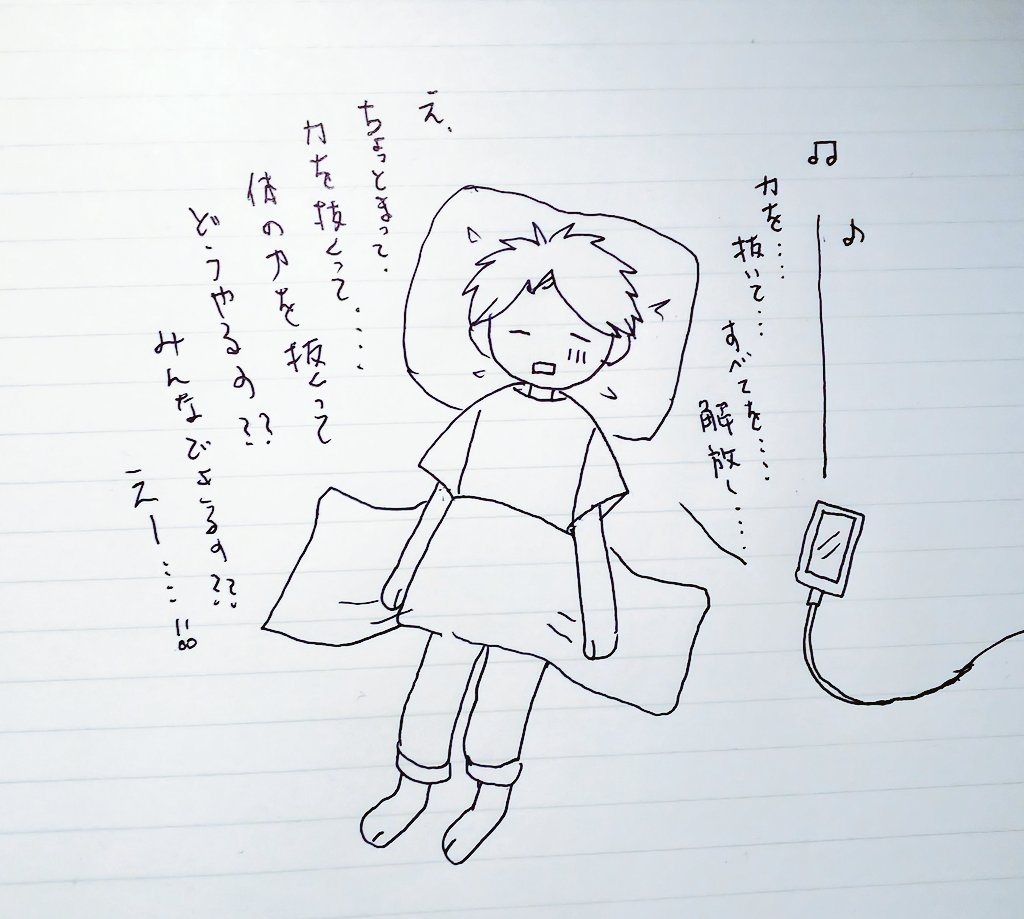 力を……
抜いて…
すべてを……
解放し……
え、
ちょっとまって、
力を抜くって……
体の力を抜くって
どうやるの??
みんなできるの??
えー……!!